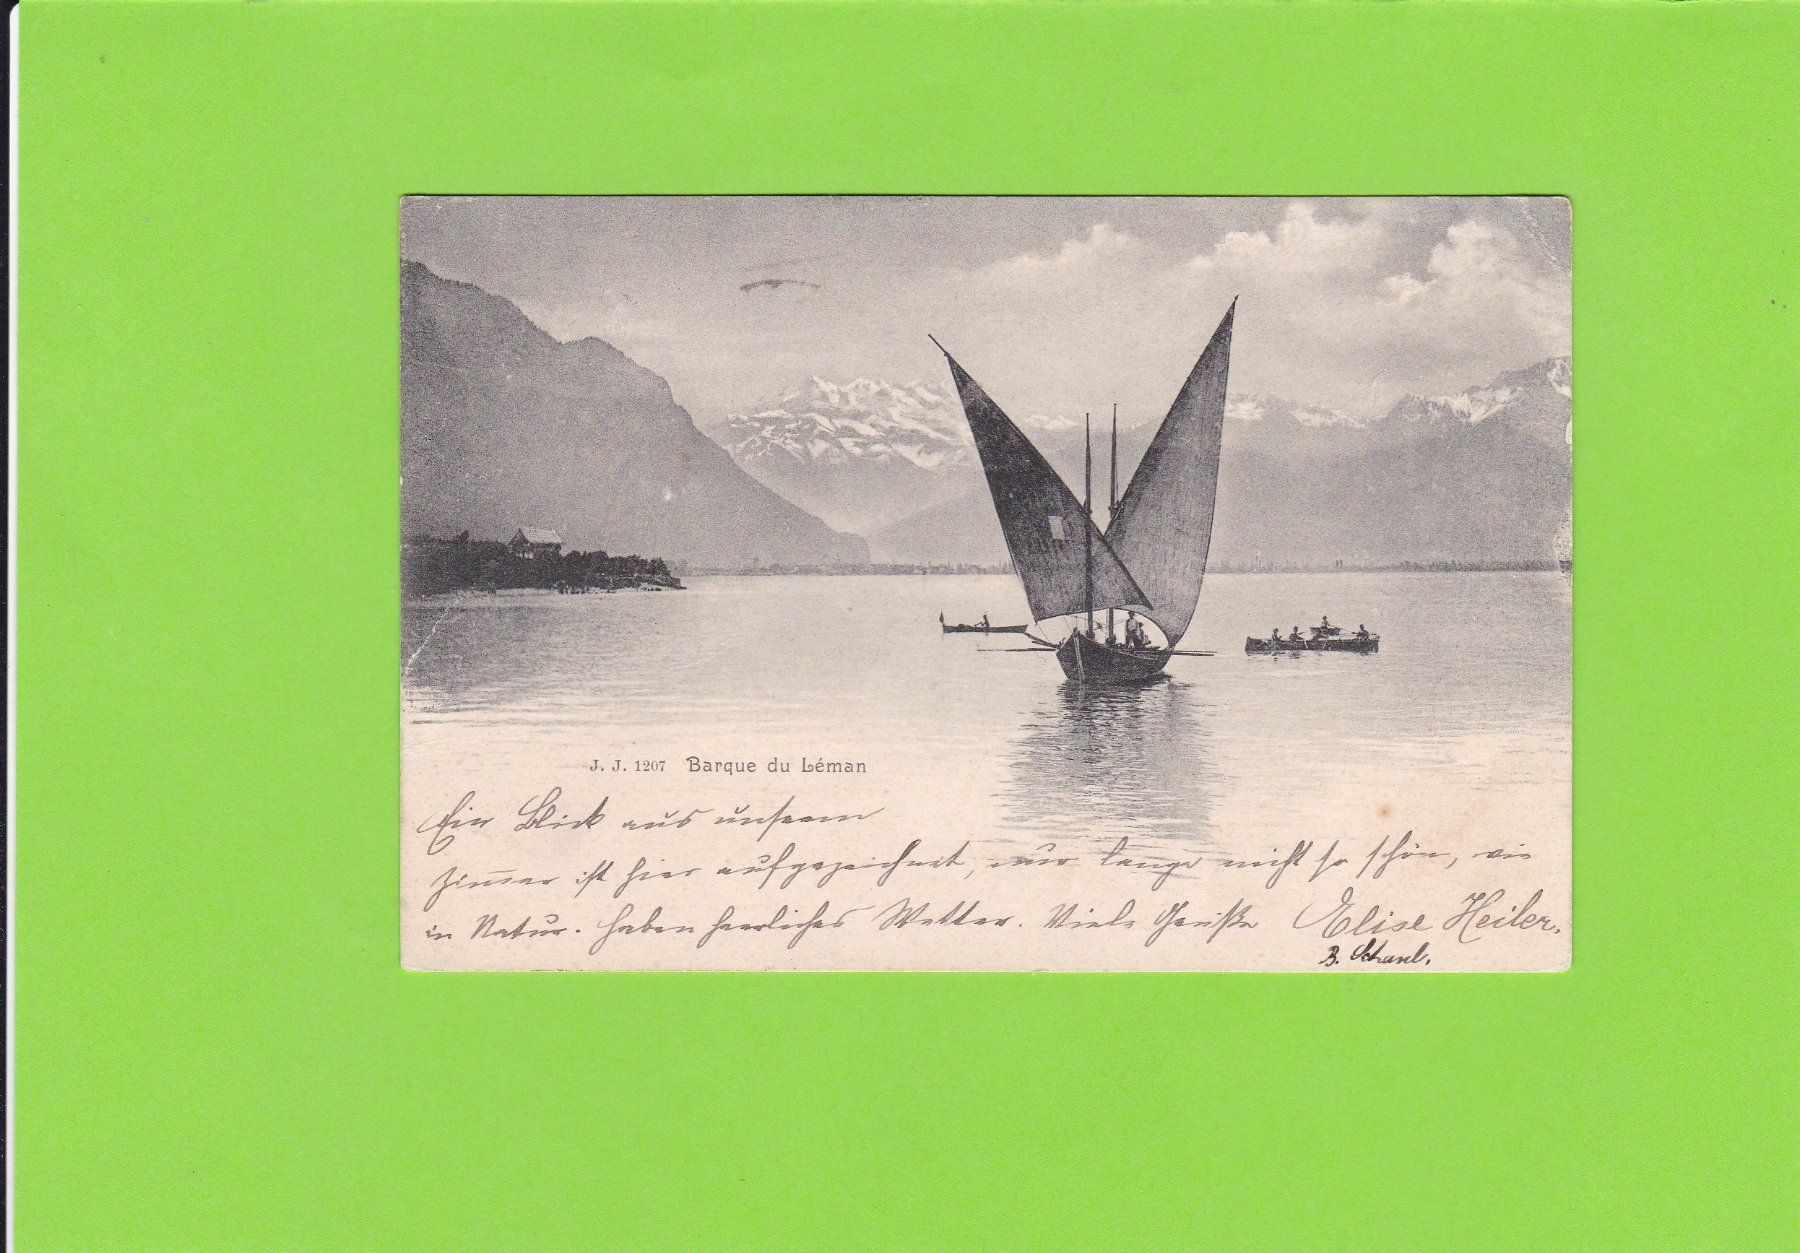 J. J. 1207 Barque du Léman
Ein Blick aus unserm
Zimmer ist hier aufgezeichnet, nur lange nicht so schön, wie
in Natur. Haben herrliches Wetter. Viele Grüße Elise Heiler.
B.